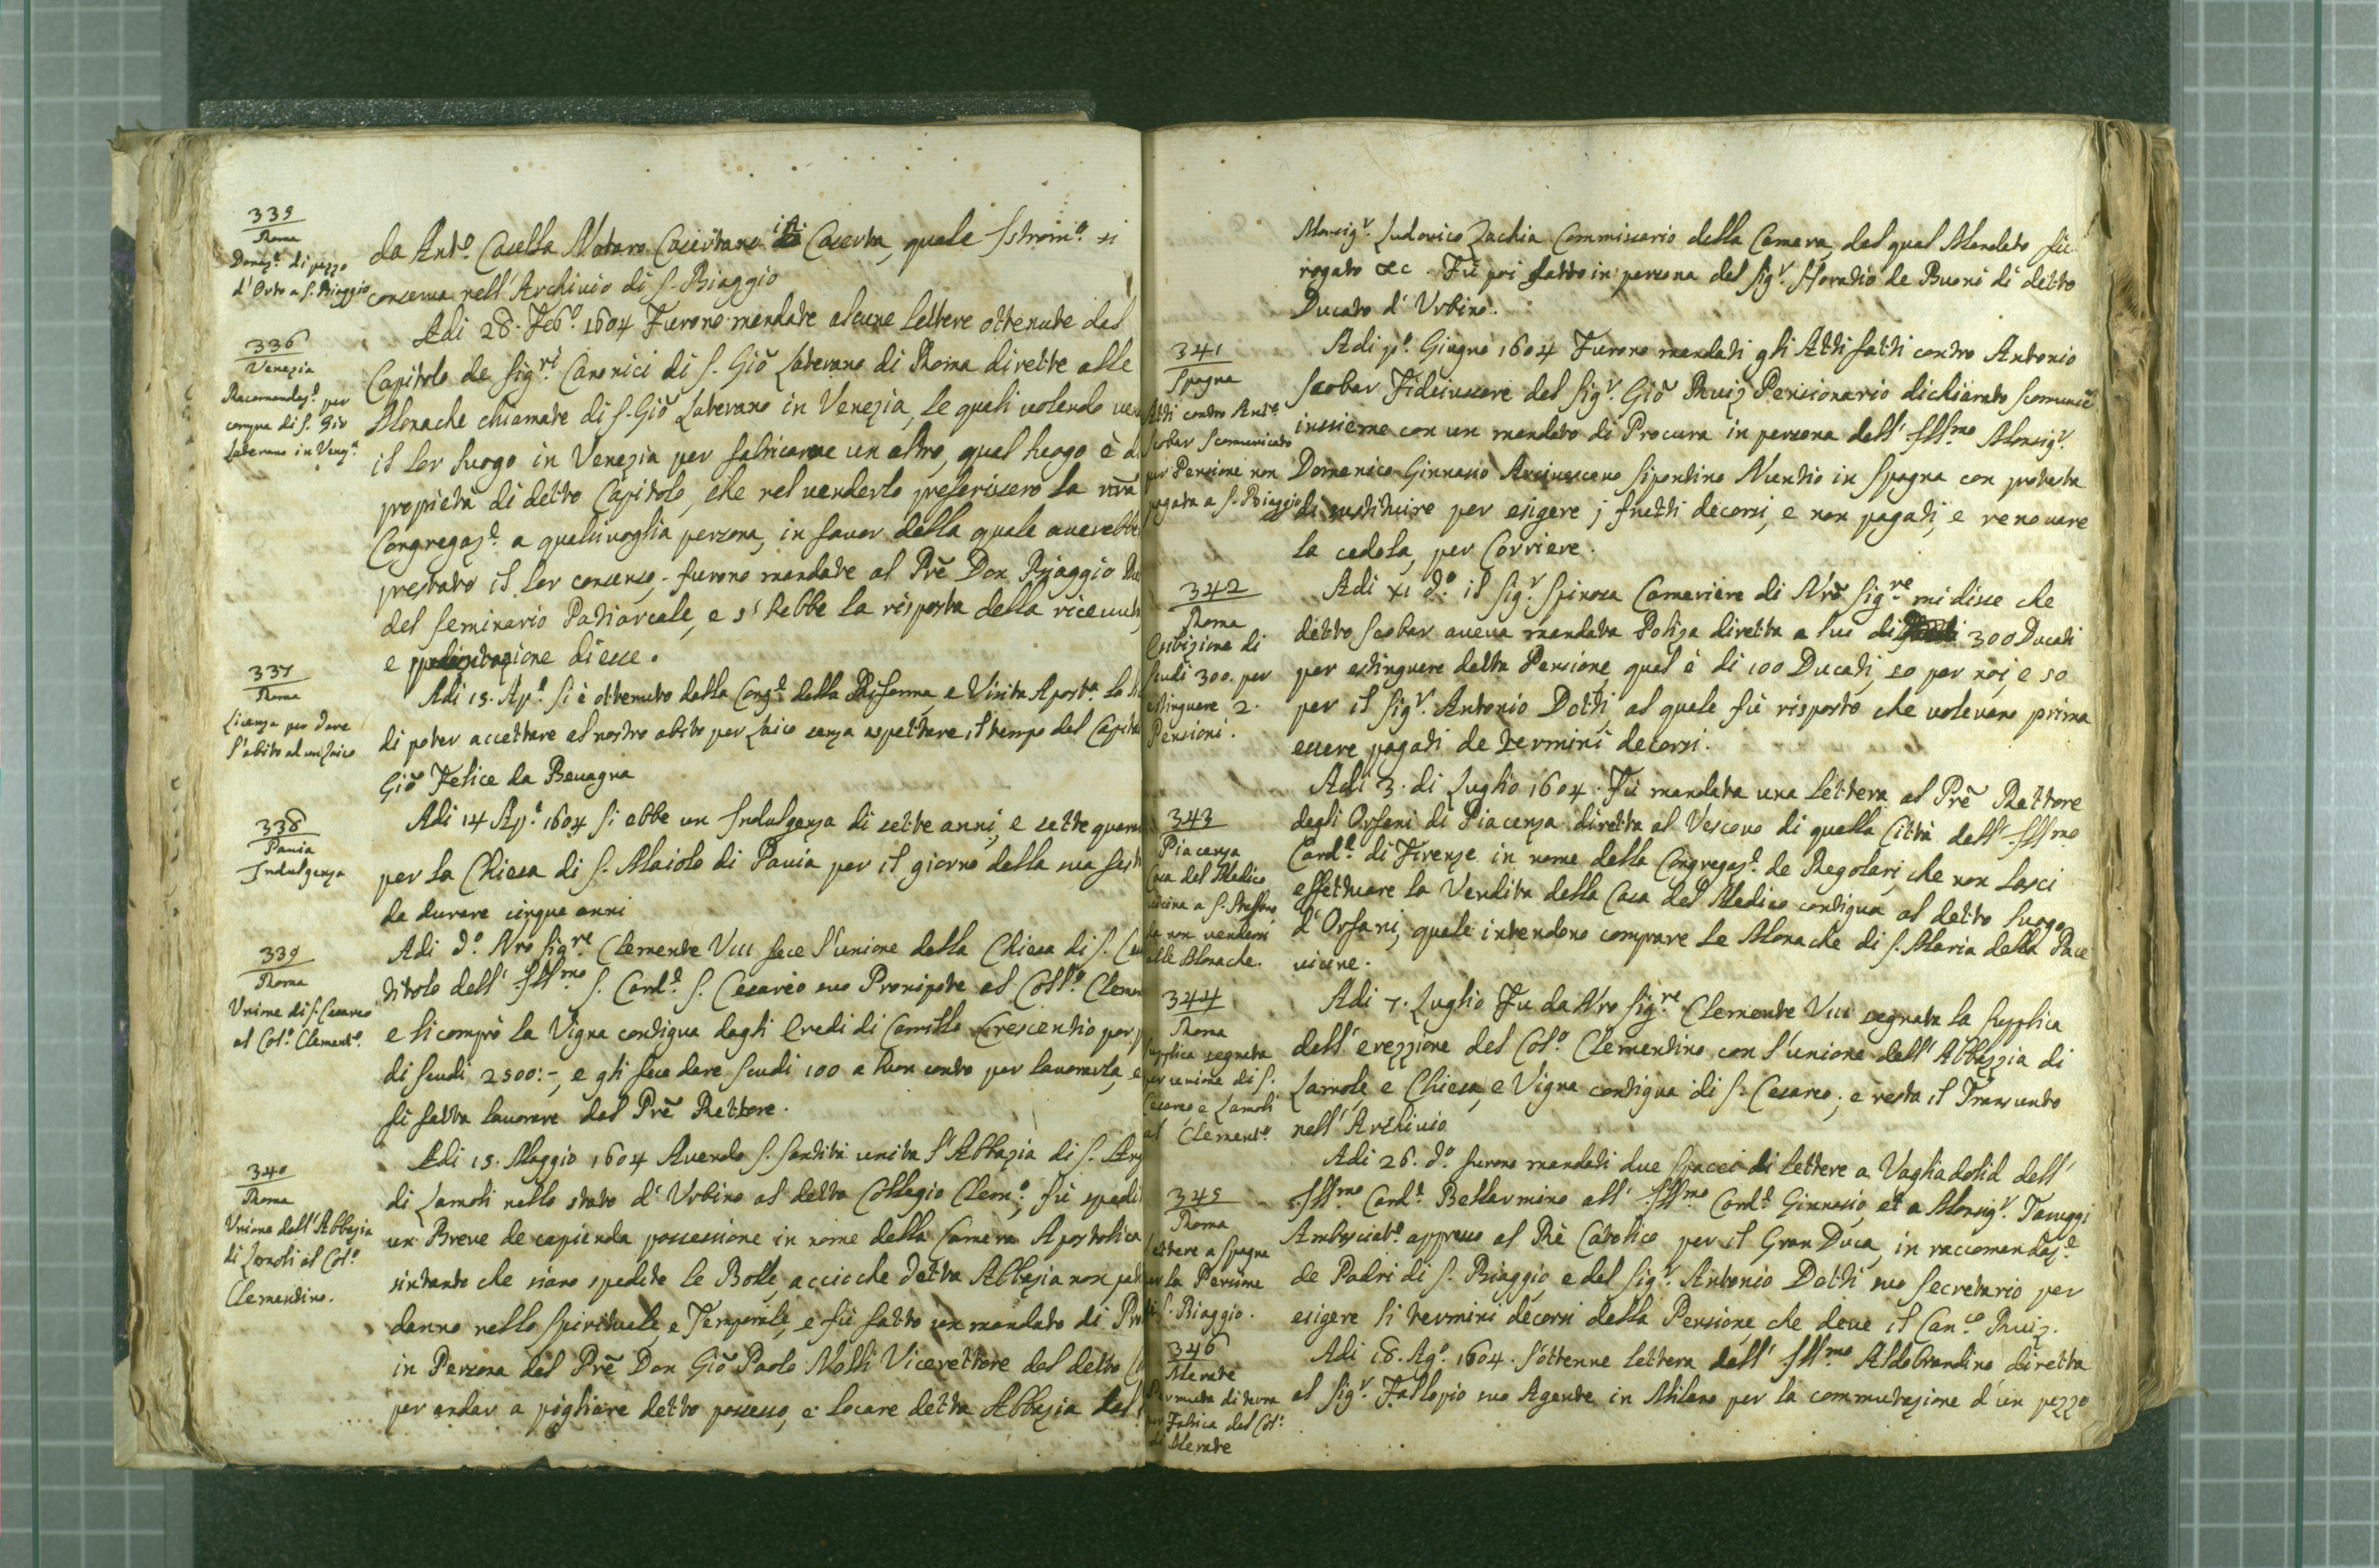 339
Roma
Donaz.e di pezzo
d'Orto a S. Biaggio
da Ant.o Casella Notaro Casertano in Caserta, quale Istrom.o si
conserva nell'Archivio di S. Biaggio
336
Venezia
Racomandaz.e per
compra di S. Gio
Laterano in Venez.a
Adi 28. Feb.o 1604 Furono mandate alcune lettere ottenute dal
Capitolo de Sig.ri Canonici di S. Giõ Laterano di Roma dirette alle
Monache chiamate di S. Giõ Laterano in Venezia, le quali volendo
il lor luogo in Venezia per fabricarne un altro, qual luogo è
propietà di detto Capitolo, che nel venderlo preferissero la nrã
Congregaz.e a qualsivoglia persona, in favor della quale averebb
prestato il lor consenso, furono mandate al Prẽ Don Biaggio
del Seminario Patriarcale, e s'hebbe la risposta della ricevut
e presentazione di esse.
337
Roma
Licenza per dare
l'abito al un Laico
Adi 15. Ap.e Si è ottenuto dalla Cong.e della Riforma, e Visita Apost.a la
di poter accettare al nostro abito per Laico senza aspettare il tempo del Capito
Giõ Felice da Bevagna
338
Pavia
Indulgenza
Adi 14 Ap.e 1604 Si ebbe un Indulgenza di sette anni, e sette quaran
per la Chiesa di S. Maiolo di Pavia per il giorno della sua fest
da durare cinque anni
339
Roma
Unione di S. Cesareo
al Col.o Clement.o
Adi d.o Nro Sig.re Clemente VIII fece l'unione della Chiesa di S. Ce
titolo dell' Ill.mo S. Card.e S. Cesareo suo Pronipote al Coll.o Clemen
e li comprò la Vigna contigua dagli Eredi di Camillo Crescentio per p
di scudi 2500:-, e gli fece dare scudi 100 a buon conto per lavorarla, e
fù fatta lavorare dal Prẽ Rettore.
340
Roma
Unione dell'Abbazia
di Lamoli al Col.o
Clementino.
Adi 15. Maggio 1604 Avendo S. Santità unita l'Abbazia di S. Ang
di Lamoli nello stato d'Urbino al detto Collegio Clem.o, fù spedi
un Breve de capienda possessione in nome della Camera Apostolica
sintanto che siano spedite le Bolle, acciòche detta Abbazia non pat
danno nello Spirituale, e Temporale, e fù fatto un mandato di Pro
in Persona del Prẽ Don Giõ Paolo Molli Vicerettore del detto C
per andar a pigliare detto possesso, e locare detta Abbazia dal
Monsig.r Ludovico Zachia Commissario della Camera, del qual Mandato fù
rogato &c. Fù poi fatto in persona del Sig.r Horatio de Buoni di detto
Ducato d'Urbino.
341
Spagna
Atti contro Ant.o
Scobar Scomunicato
per Pensione non
pagata a S. Biaggio
Adi p.o Giugno 1604 Furono mandati gli Atti fatti contro Antonio
Scobar Fideiussore del Sig.r Giõ Ruiz Pensionario dichiarato scomunic.
inssieme con un mandato di Procura in persona dell' Ill.mo Monsig.r
Domenico Ginnasio Arcivescovo Sipontino Nuntio in Spagna con protesta
di sustituire per esigere j frutti decorsi, e non pagati, e renovare
la cedola, per Corriere.
342
Roma
Esibizione di
Scudi 300. per
estinguere 2.
Pensioni.
Adi XI d.o il Sig.r Spinosa Cameriere di Nrõ Sig.re mi disse che
detto Scobar aveva mandata Poliza diretta a lui di 300 Ducati
per estinguere detta Pensione, qual è di 100 Ducati, 50 per noi, e 50
per il Sig.r Antonio Dotti, al quale fù risposto che volevano prima
essere pagati de termini decorsi.
343
Piacenza
Casa del Medico
vicina a S. Steffano
da non vendersi
alle Monache.
Adi 3. di Luglio 1604. Fù mandata una lettera al Prẽ Rettore
degli Orfani di Piacenza diretta al Vescovo di quella Città dell' Ill.mo
Card.e di Firenze in nome della Congregaz.e de Regolari, che non lasci
effettuare la Vendita della Casa del Medico contigua al detto luogo
d'Orfani, quale intendono comprare le Monache di S. Maria della Pace
vicine.
344
Roma
Supplica segnata
per unione di S.
Cesareo e Lamoli
al Clement.o
Adi 7. Luglio Fu da Nro Sig.re Clemente VIII segnata la Supplica
dell'erezzione del Col.o Clementino con l'unione dell'Abbazzia di
Lamole, e Chiesa, e Vigna contigua di S. Cesareo; e resta il Transunto
nell'Archivio
345
Roma
Lettere a Spagna
per la Pensione
di S. Biaggio.
Adi 26. d.o furono mandati due spacci di lettere a Vagliadolid dell'
Ill.mo Card.e Bellarmino all' Ill.mo Card.e Ginnasio, et a Monsig.r Taruggi
Ambasciat.e appresso al Rè Catolico per il Gran Duca, in raccomandaz.e
de Padri di S. Biaggio, e del Sig.r Antonio Dotti suo Secretario per
esigere li termini decorsi della Pensione, che deve il Can.co Ruiz.
346
Merate
Permuta di terra
per Fabrica del Col.o
di Merate
Adi 18. Ag.o 1604. S'ottenne lettera dell' Ill.mo Aldobrandino diretta
al Sig.r Fallopio suo Agente in Milano per la commutazione d'un pezzo